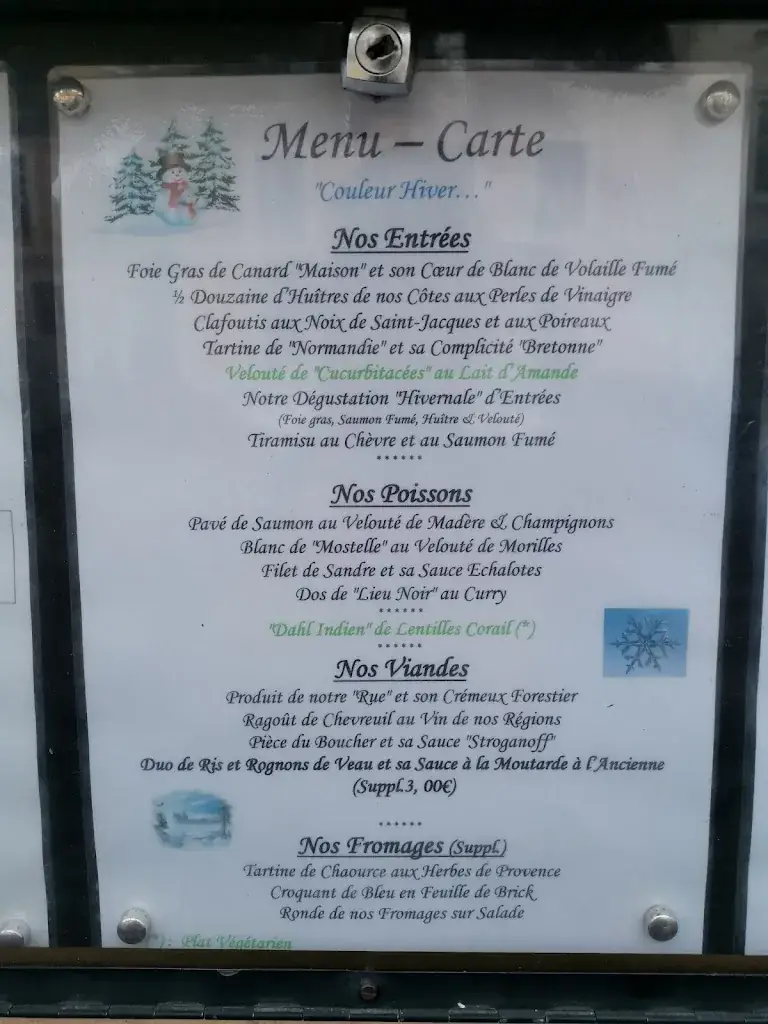 Menu – Carte
"Couleur Hiver..."
Nos Entrées
Foie Gras de Canard "Maison" et son Cœur de Blanc de Volaille Fumé
½ Douzaine d'Huîtres de nos Côtes aux Perles de Vinaigre
Clafoutis aux Noix de Saint-Jacques et aux Poireaux
Tartine de "Normandie" et sa Complicité "Bretonne"
Velouté de "Cucurbitacées" au Lait d'Amande
Notre Dégustation "Hivernale" d'Entrées
(Foie gras, Saumon Fumé, Huître & Velouté)
Tiramisu au Chèvre et au Saumon Fumé
******
Nos Poissons
Pavé de Saumon au Velouté de Madère & Champignons
Blanc de "Mostelle" au Velouté de Morilles
Filet de Sandre et sa Sauce Echalotes
Dos de "Lieu Noir" au Curry
******
"Dahl Indien" de Lentilles Corail (*)
******
Nos Viandes
Produit de notre "Rue" et son Crémeux Forestier
Ragoût de Chevreuil au Vin de nos Régions
Pièce du Boucher et sa Sauce "Stroganoff"
Duo de Ris et Rognons de Veau et sa Sauce à la Moutarde à l'Ancienne
(Suppl.3, 00€)
******
Nos Fromages (Suppl.)
Tartine de Chaource aux Herbes de Provence
Croquant de Bleu en Feuille de Brick
Ronde de nos Fromages sur Salade
*): Plat Végétarien